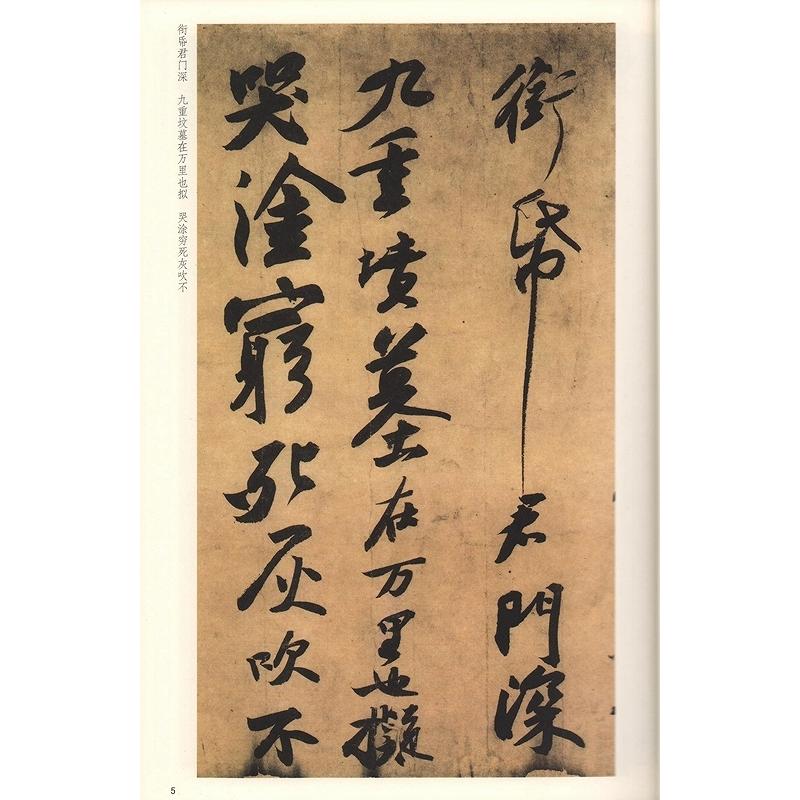 銜帋君門深
九重墳墓在万里也擬
哭塗窮死灰吹不
衔帋君门深 九重坟墓在万里也拟 哭涂穷死灰吹不
5